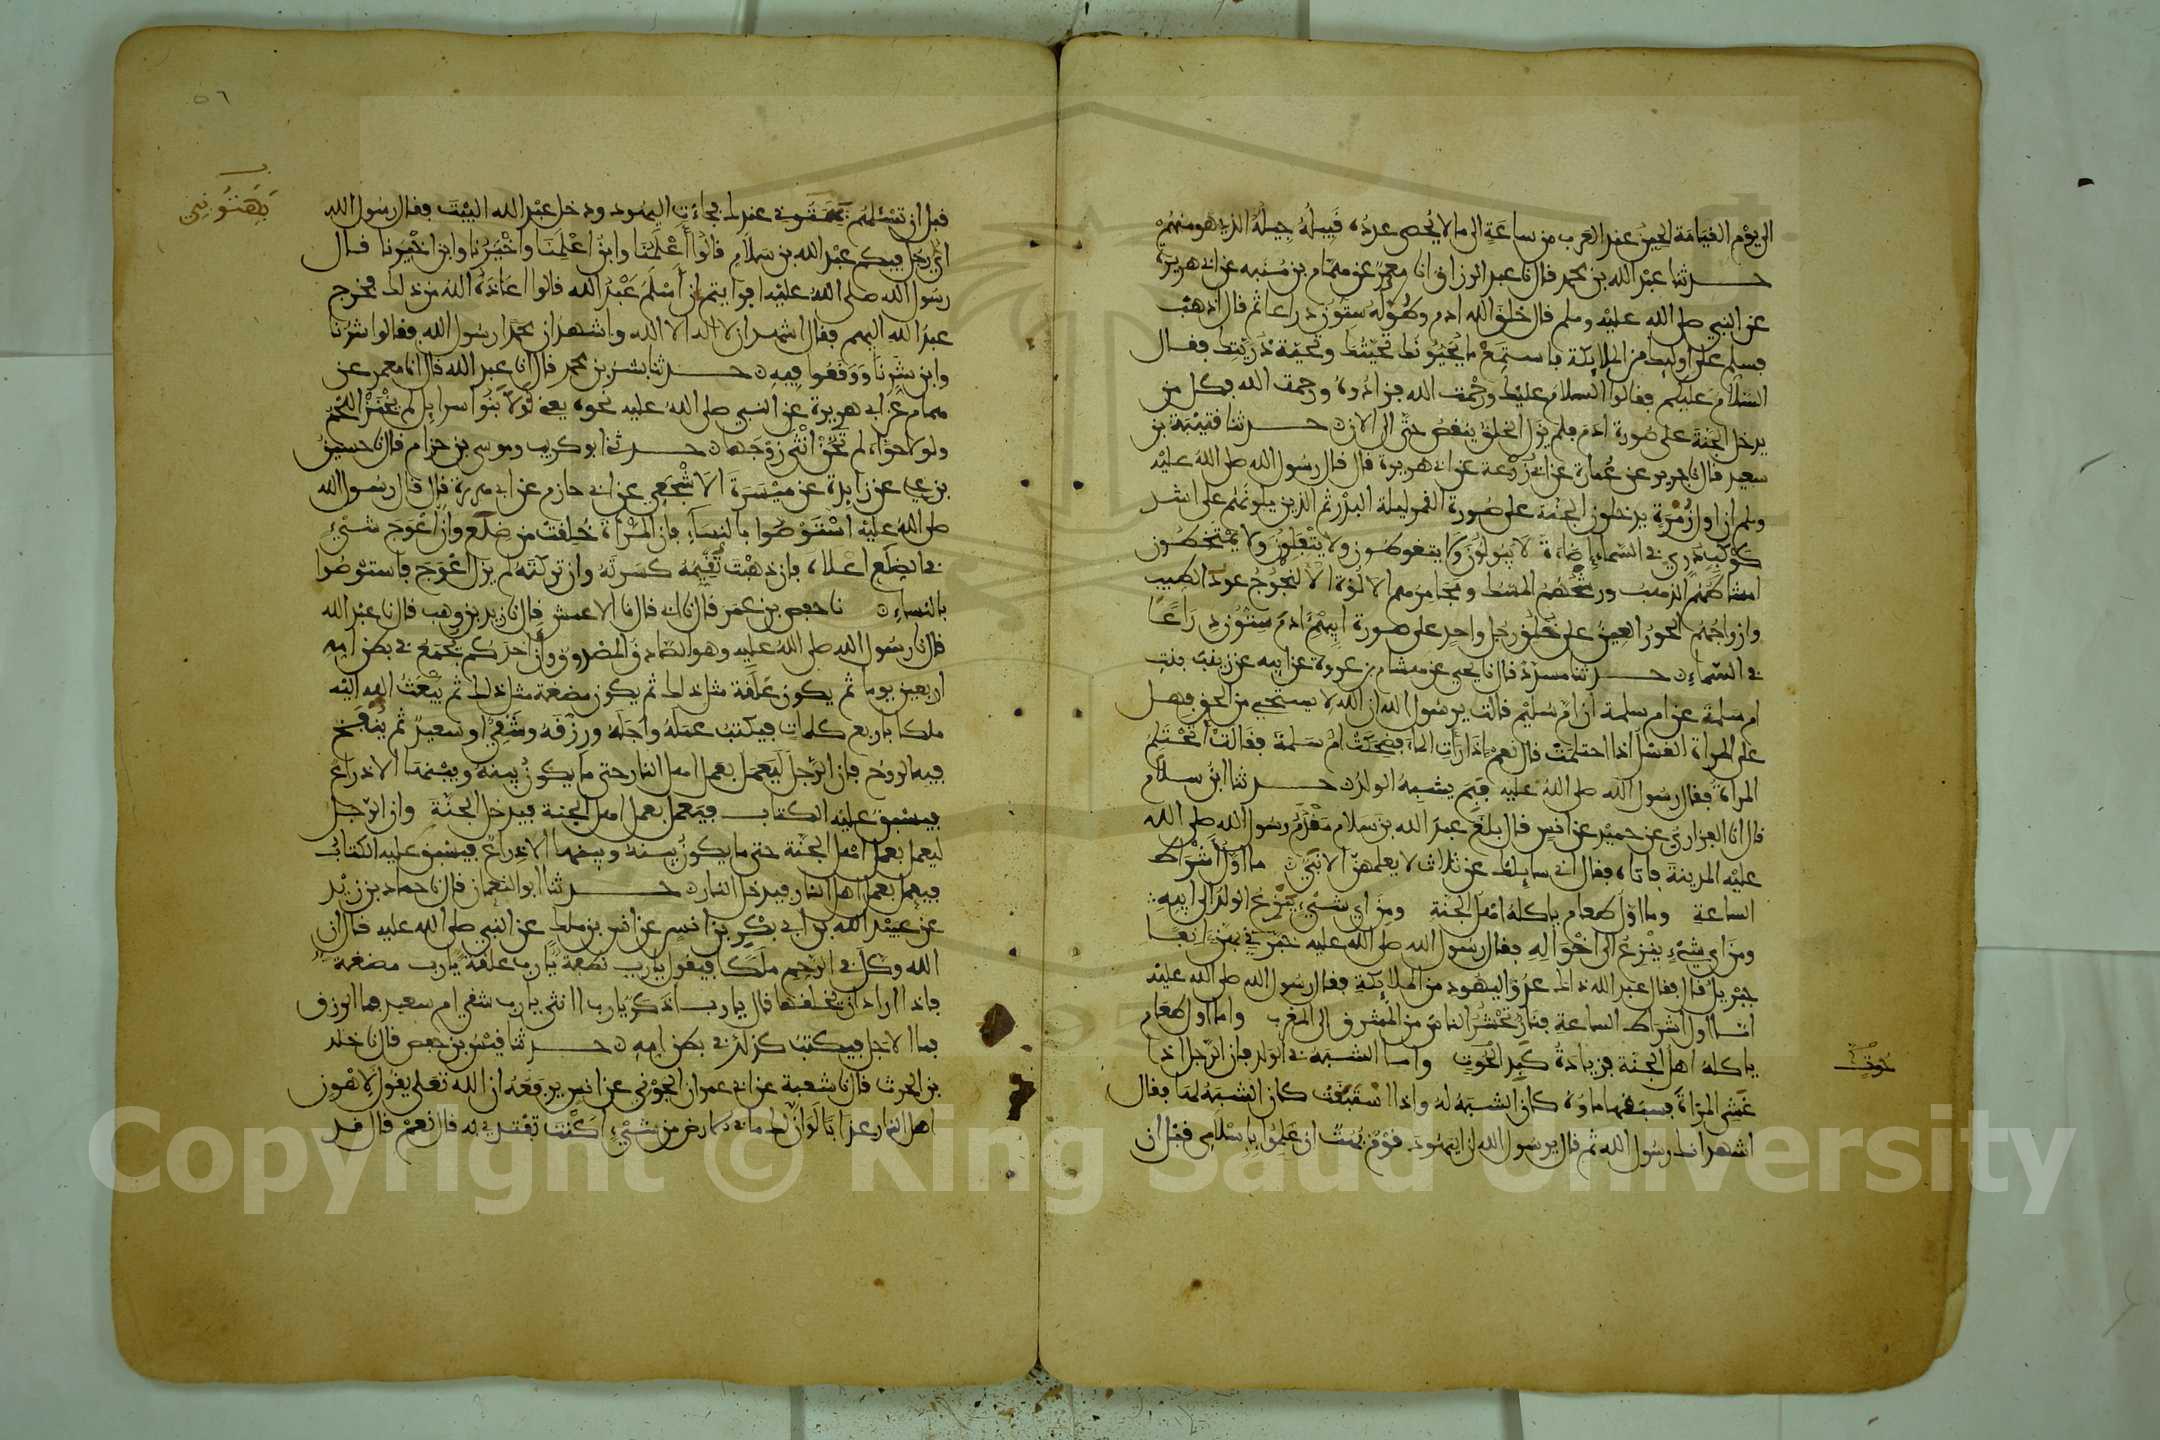 الى يوم القيامة الحين عند العرب من ساعة الى ما لا يحصى عدده قبيله جيله الذي هو منهم
حدثنا عبد الله بن محمد قال نا عبد الرزاق انا معمر عن همام بن منبه عن ابي هريرة
عن النبي صلى الله عليه وسلم قال خلق الله ادم وطوله ستون ذراعا ثم قال اذهب
فسلم على اوليك من الملايكة فاستمع ما يحيونك تحيتك وتحية ذريتك فقال
السلام عليكم فقالوا السلام عليك ورحمت الله فزادوه ورحمت الله فكل من
يدخل الجنة على صورة ادم فلم يزل الخلق ينقص حتى الى الان حدثنا قتيبة بن
سعيد قال نا جرير عن عمارة عن ابي زرعة عن ابي هريرة قال قال رسول الله صلى الله عليه
وسلم ان اول زمرة يدخلون الجنة على صورة القمر ليلة البدر ثم الذين يلونهم على اشد
كوكب دري في السماء اضاءة لا يبولون ولا يتغوطون ولا يتفلون ولا يمتخطون
امشاطهم الذهب ورشحهم المسك ومجامرهم الالوة الالنجوج عود الطيب
وازواجهم الحور العين على خلق رجل واحد على صورة ابيهم ادم ستون ذراعا
في السماء حدثنا مسدد قال نا يحيى عن هشام بن عروة عن ابيه عن زينب بنت
ام سلمة عن ام سلمة ان ام سليم قالت يرسول الله ان الله لا يستحيي من الحق فهل
على المراة الغسل اذا احتلمت قال نعم اذا رات الماء فضحكت ام سلمة فقالت اتحتلم
المراة فقال رسول الله صلى الله عليه فبم يشبه الولد حدثنا ابن سلام
قال انا الفزاري عن حميد عن انس قال بلغ عبد الله بن سلام مقدم رسول الله صلى الله
عليه المدينة فاتاه فقال اني سايلك عن ثلاث لا يعلمهن الا نبي ما اول اشراط
الساعة وما اول طعام ياكله اهل الجنة ومن اي شيء ينزع الولد الى ابيه
ومن اي شيء ينزع الى اخواله فقال رسول الله صلى الله عليه خبرني بهن انفا
جبريل قال فقال عبد الله ذاك عدو اليهود من الملايكة فقال رسول الله صلى الله عليه
اما اول اشراط الساعة فنار تحشر الناس من المشرق الى المغرب واما اول طعام
ياكله اهل الجنة فزيادة كبد الحوت واما الشبه في الولد فان الرجل اذا
غشي المراة فسبقها ماوه كان الشبه له واذا استبقت كان الشبه لها فقال
اشهد انك رسول الله ثم قال يرسول الله ان اليهود قوم بهت ان علموا باسلامي قبل ان
حوت
قبل ان تسلهم بهتوني عندك فجاءت اليهود ودخل عبد الله البيت فقال رسول الله
اي رجل فيكم عبد الله بن سلام قالوا اعلمنا وابن اعلمنا واخيرنا وابن اخيرنا قال
رسول الله صلى الله عليه افرايتم ان اسلم عبد الله قالوا اعاذه الله من ذلك فخرج
عبد الله اليهم فقال اشهد ان لا اله الا الله واشهد ان محمدا رسول الله فقالوا شرنا
وابن شرنا ووقعوا فيه حدثنا بشر بن محمد قال انا عبد الله قال انا معمر عن
همام عن ابي هريرة عن النبي صلى الله عليه نحوه يعني لولا بنوا اسرايل لم يخنز اللحم
ولولا حواء لم تخن انثى زوجها حدثنا ابو كريب وموسى بن حزام قالا نا حسين
بن علي عن زايدة عن ميسرة الاشجعي عن ابي حازم عن ابي هريرة قال قال رسول الله
صلى الله عليه استوصوا بالنساء فان المراة خلقت من ضلع وان اعوج شيء
في الضلع اعلاه فان ذهبت تقيمه كسرته وان تركته لم يزل اعوج فاستوصوا
بالنساء نا حفص بن عمر قال نا ابي قال نا الاعمش قال نا زيد بن وهب قال نا عبد الله
قال نا رسول الله صلى الله عليه وهو الصادق المصدوق وان احدكم يجمع في بطن امه
اربعين يوما ثم يكون علقة مثل ذلك ثم يكون مضغة مثل ذلك ثم يبعث الله اليه
ملكا باربع كلمات فيكتب عمله واجله ورزقه وشقي او سعيد ثم ينفخ
فيه الروح فان الرجل ليعمل بعمل اهل النار حتى ما يكون بينه وبينها الا ذراع
فيسبق عليه الكتاب فيعمل بعمل اهل الجنة فيدخل الجنة وان الرجل
ليعمل بعمل اهل الجنة حتى ما يكون بينه وبينها الا ذراع فيسبق عليه الكتاب
فيعمل بعمل اهل النار فيدخل النار حدثنا ابو النعمان قال نا حماد بن زيد
عن عبيد الله بن ابي بكر بن انس عن انس بن ملك عن النبي صلى الله عليه قال ان
الله وكل في الرحم ملكا فيقول يارب نطفة يارب علقة يارب مضغة
فاذا اراد ان يخلقها قال يارب اذكر يارب انثى يارب شقي ام سعيد فما الرزق
فما الاجل فيكتب كذلك في بطن امه حدثنا قيس بن حفص قال نا خلد
بن الحرث قال نا شعبة عن ابي عمران الجوني عن انس يرفعه ان الله تعلى يقول لاهون
اهل النار عذابا لو ان لك ما في الارض من شيء اكنت تفتدي به قال نعم قال فقد
بهتوني
٥٦
Copyright © King Saud University